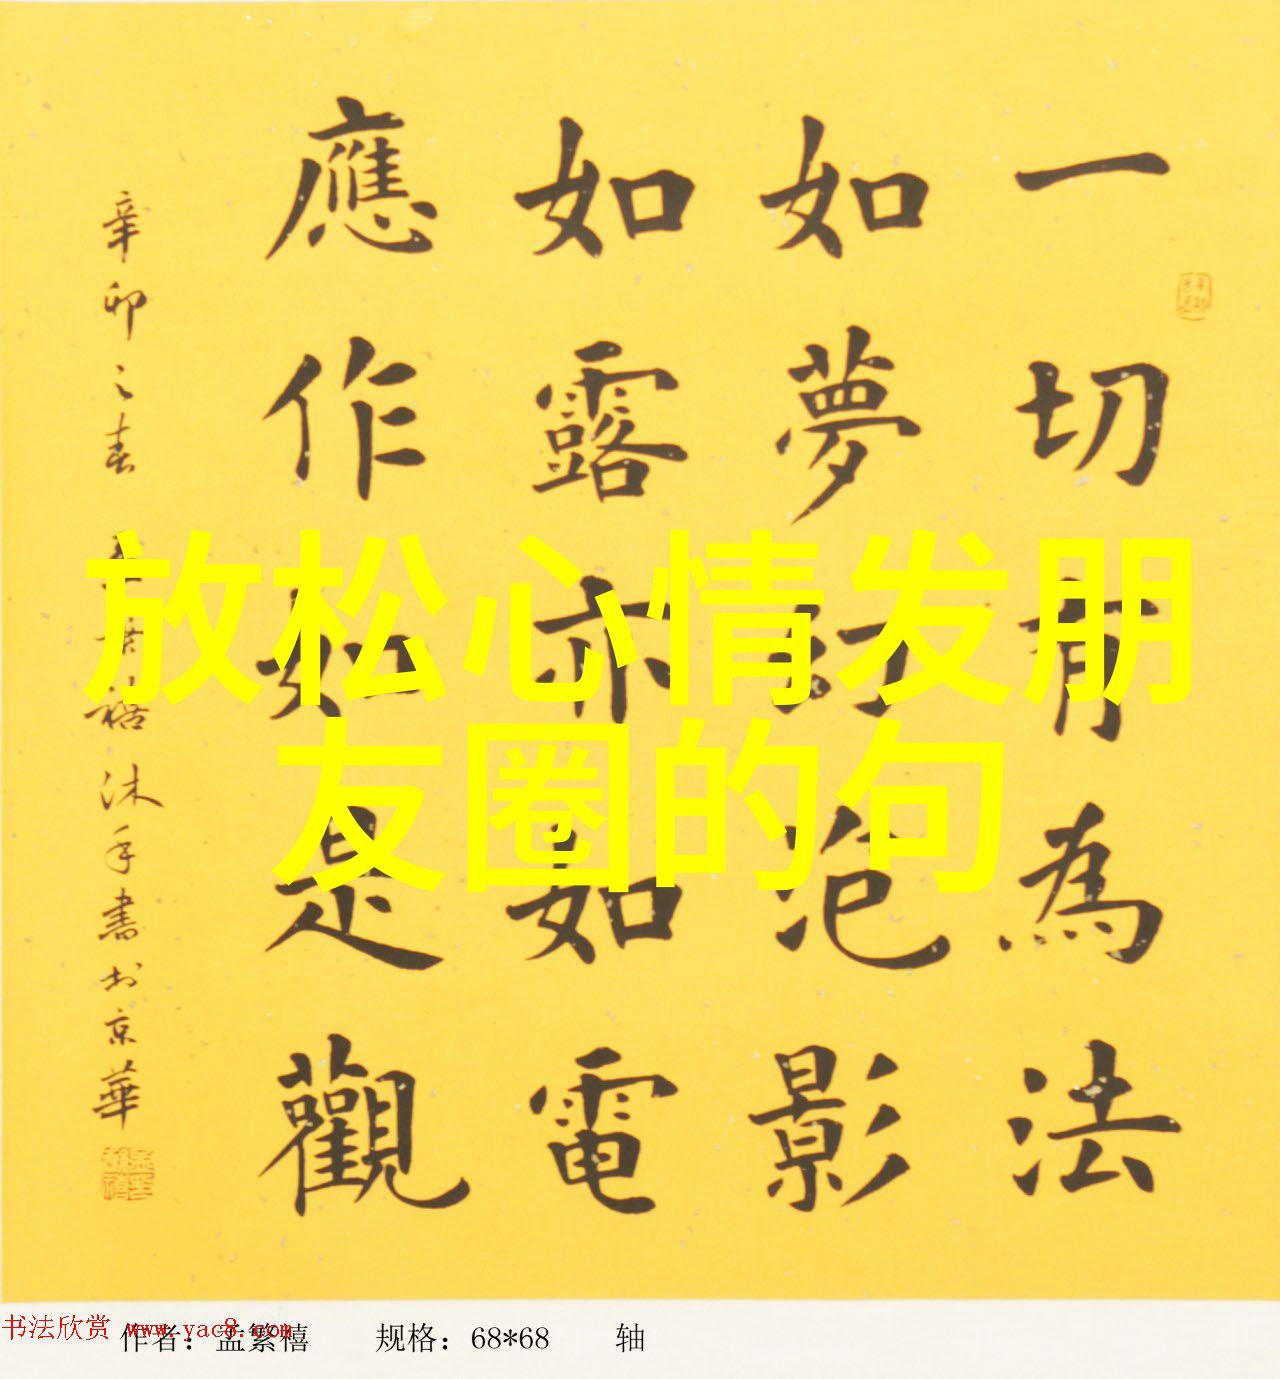 一切有為法
如夢幻泡影
如露亦如電
應作如是觀
辛卯之春
沐手書於京華
放松心情发朋
友圈的句
书法欣赏 www.yac8.com
作者：孟繁禧 规格：68*68 轴